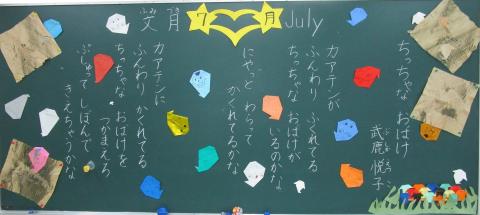 文月 7月 July
ふみ づき
ちっちゃな おばけ
武鹿悦子
カアテンが
ふんわり ふくれてる
ちっちゃな おばけが
いるのかな
にやっと わらって
かくれてるかな
カアテンに
ふんわり かくれてる
ちっちゃな おばけを
つかまえろ
ぷしゅって しぼんで
きえちゃうかな